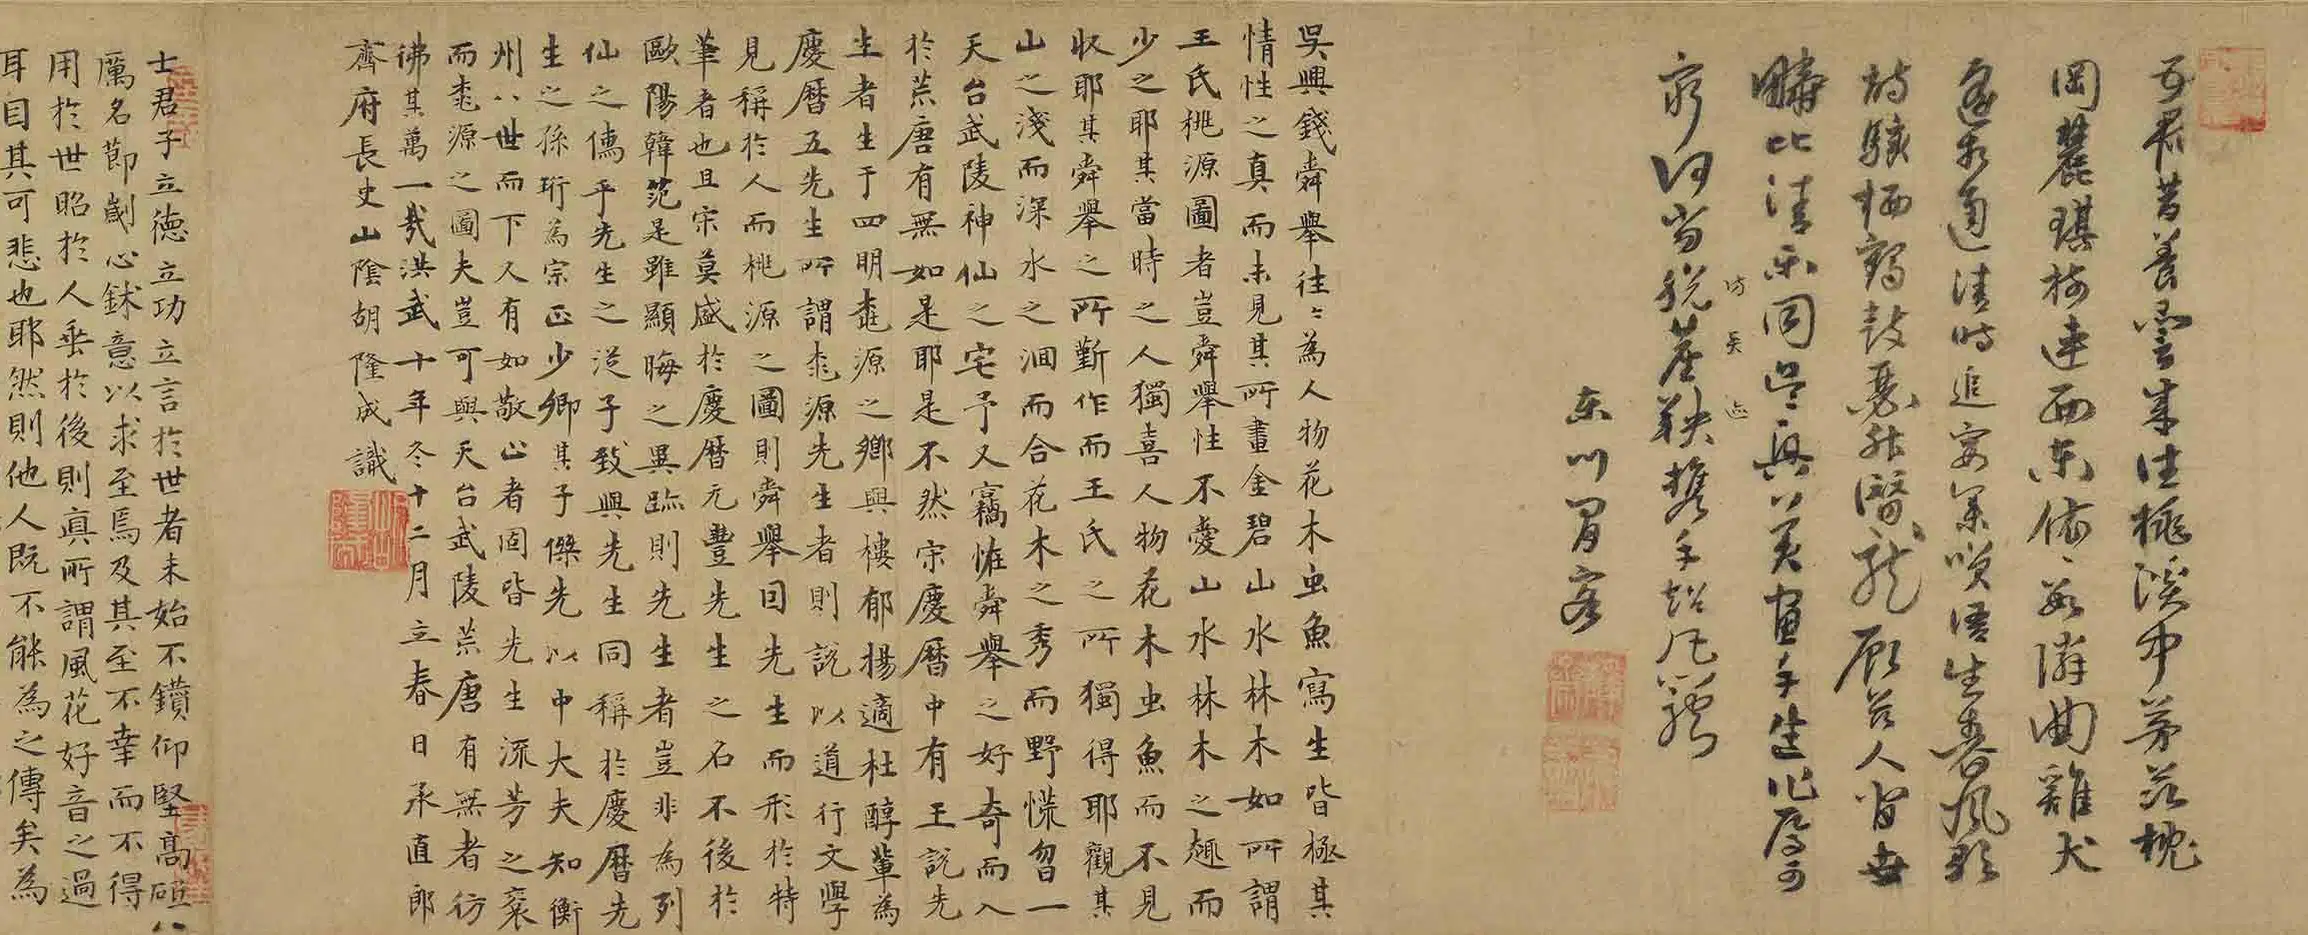 吾君昔養雲朱往桃溪中茅茨枕
岡麓琪樹連西東依依數隣曲雞犬
遥相通清時追宴集笑語生春風歌
詩猿栖鶴鼓瑟舞
疇比清樂同吳興美畫手生作
窮何當脫塵鞅携手
东川胃客
吳興錢舜舉往々為人物花木虫魚寫生皆極其
情性之真而未見其所畫金碧山水林木如所謂
王氏桃源圖者豈舜舉性不愛山水林木之趣而
少之耶其當時之人獨喜人物花木虫魚而不見
収耶其舜舉之所勤作而王氏之所獨得耶觀其
山之淺而深水之洄而合花木之秀而野慌忽一
天台武陵神仙之宅予又竊恠舜舉之好奇而入
於荒唐有無如是耶是不然宋慶曆中有王說先
生者生于四明桃源之鄉與樓郁楊適杜醇輩為
慶曆五先生所謂桃源先生者則說以道行文學
見稱於人而桃源之圖則舜舉因先生而形於特
筆者也且宋莫盛於慶曆元豐先生之名不後於
歐陽韓范是雖顯晦之異跡則先生者豈非為列
仙之儔乎先生之從子致與先生同稱於慶曆先
生之孫珩為宗正少卿其子傑先以中大夫知衡
州八世而下又有如敬止者固皆先生流芳之裔
而桃源之圖夫豈可與天台武陵荒唐有無者彷
彿其萬一哉洪武十年冬十二月立春日承直郎
齊府長史山陰胡隆成識
士君子立德立功立言於世者未始不鑽仰堅高
厲名節劌心鉥意以求至焉及其至不幸而不得
用於世昭於人垂於後則真所謂風花好音之過
耳目其可悲也耶然則他人既不能為之傳矣為